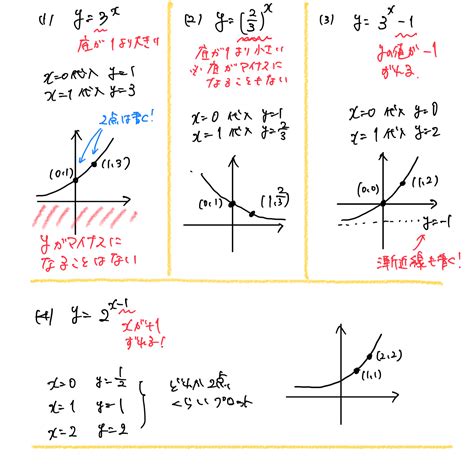 (1) y=3^x
底が1より大きい
x=0 代入 y=1
x=1 代入 y=3
2点は書く!
(0,1)
(1,3)
yがマイナスに
なることはない
(2) y=(2/3)^x
底が1より小さい
※底がマイナスに
なることもない
x=0 代入 y=1
x=1 代入 y=2/3
(0,1)
(1,2/3)
(3) y=3^x-1
yの値が-1
ずれる。
x=0 代入 y=0
x=1 代入 y=2
(0,0)
(1,2)
y=-1
漸近線も書く!
(4) y=2^{x-1}
xが+1
ずれる!
x=0 y=1/2
x=1 y=1
x=2 y=2
どれか2点
くらいプロット
(2,2)
(1,1)